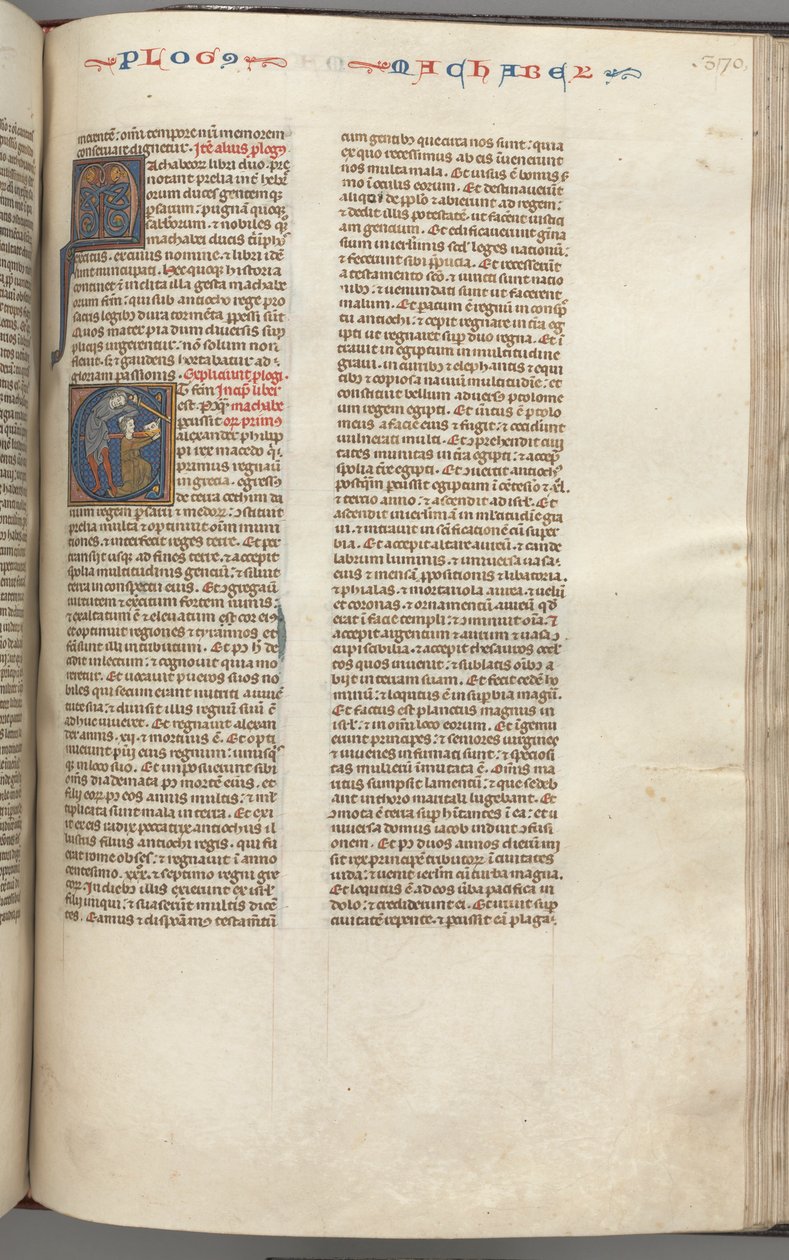 PLOG9 MACHABEOR
.370.
merentē: omī tempore nr̄i memorem
conseruare dignetur. Itē alius p̱log9
Machabeorꝝ libri duo p̱re
notant prelia int̄ hebre
orum duces gentemq;
p̱saꝝum: pugnā quoqꝫ
sabb̄orum. ⁊ nobiles
machabei ducis triūph9
nomine. ⁊ libri idē
sunt nuncupati. Hec quoqꝫ historia
continet ⁊ inclita illa gesta machabe
orum fr̄m: qui sub antiocho rege pro
sacris legib9 dira tormēta p̱pessi sūt
Quos mater pia dum diuersis sup
pliciis urgerentur: nō solum non
fleuit. sꝫ ⁊ gaudens hortabatur ad
gloriam passionis. Expliciunt p̱logi.
Et fc̄m Incip̄ liber
est. Postqꝫ machabe
percussit orꝝ primus
alexander philip
pi rex macedo qͥ
primus regnauit
in grecia. egressus
de terra cethim da
rium regem p̱saꝝ ⁊ medorꝝ: ↄstituit
prelia multa ⁊ optinuit oīm muni
tiones. ⁊ interfecit reges terre. Et per
transiit usqꝫ ad fines terre. ⁊ accepit
spolia multitudinis gentiū: ⁊ siluit
terra in conspectu eius. Et ↄgregauit
uirtutem ⁊ exercitum fortem nimis:
⁊ exaltatum ē ⁊ eleuatum est cor eius
et optinuit regiones ⁊ tyrannos et
fc̄i sunt illi in tributum. Et pꝰ h̄ de
cidit in lectum: ⁊ cognouit quia mo
reretur. Et uocauit pueros suos no
biles qui secum erant nutriti a iuuē
tute sua: ⁊ diuisit illis regnū suū cū
adhuc uiueret. Et regnauit alexan
der annis .xii. ⁊ mortuus ē. Et opti
nuerunt pu̅i eius regnum: unusqͥs
qꝫ in loco suo. Et imposuerunt sibi
om̄s diademata pꝰ mortē eius. et
filii eorꝝ pꝰ eos annis multis: ⁊ ml̄
tiplicata sunt mala in terra. Et exi
it ex eis radix peccatrix antiochus il
lustris filius antiochi regis. qui fu
erat rome obses: ⁊ regnauit ī anno
centesimo .xxx. ⁊ septimo regni gre
corꝝ. In dieb9 illis exierunt ex isrł
filii iniqui: ⁊ suaserūt multis dicē
tes. Eamus ⁊ disponam9 testamētū
cum gentib9 que circa nos sunt: quia
ex quo recessimus ab eis īuenerunt
nos multa mala. Et uisus ē bonus ẜ
mo ī oculis eorum. Et destinauerūt
aliqͥ de ppl̄o ⁊ abierunt ad regem:
⁊ dedit illis potestatē. ut facerēt iustici
am gentium. Et edificauerunt gīna
sium in ierl̄imis scd̄ leges nationū:
⁊ fecerunt sibi p̱pucia. Et recesserūt
a testamento scō. ⁊ iuncti sunt natio
nib9. ⁊ uenundati sunt ut facerent
malum. Et paratum ē regnū in consp̄
tu antiochi: ⁊ cepit regnare in tr̄a eg
ipti ut regnaret sup duo regna. Et ī
trauit in egiptum in multitudine
graui. in curribus ⁊ elephantis ⁊ equi
tib9 ⁊ copiosa nauiū multitudīe: et
constituit bellum aduersus ptolome
um regem egipti. Et ūitus ē ptolo
meus a facie eius ⁊ fugit: ⁊ ceciderunt
uulnerati multi. Et ↄprehendit ciui
tates munitas in tr̄a egipti: ⁊ accep̄
spolia tr̄e egipti. Et ↄuertit antioch9
postqꝫ̄ percussit egiptum ī cētesīo ⁊ .xl.
⁊ tertio anno: ⁊ ascendit ad isrł. Et
ascendit ierl̄imam in ml̄titudīe gra
ui. ⁊ intrauit in sc̄ificationē cū super
bia. Et accepit altare aureū. ⁊ cande
labrum luminis. ⁊ uniuersa uasa
eius ⁊ mensā p̱positionis ⁊ libatoria.
⁊ phialas. ⁊ mortariola aurea. ⁊ uelū
et coronas. ⁊ ornamentū aureū qd̄
erat ī facie templi: ⁊ ↄminuit om̄a. ⁊
accepit argentum ⁊ aurum ⁊ uasa ↄ
cupiscibilia. ⁊ accepit thesauros occul
tos quos inuenit: ⁊ sublatis oīb9 a
biit in terram suam. Et fecit cedē ho
minū: ⁊ loqutus ē in superbia magna.
Et factus est planctus magnus in
isrł. ⁊ in om̄i loco eorum. Et īgemu
erunt principes: ⁊ seniores uirgines
⁊ iuuenes infirmati sunt: ⁊ speciosi
tas mulierū īmutata ē. Om̄is ma
ritus sumpsit lamentū: ⁊ que sedeb
ant in thoro maritali lugebant. Et
ↄmota ē terra sup hītantes ī ea: et u
niuersa domus iacob induit ↄfusi
onem. Et pꝰ duos annos dierū mi
sit rex principē tributorꝝ ī ciuitates
iuda: ⁊ uenit ierl̄m cū turba magna.
Et loqutus ē ad eos ūba pacifica in
dolo: ⁊ crediderunt ei. Et irruit sup
ciuitatē repente. ⁊ percussit eā plaga.